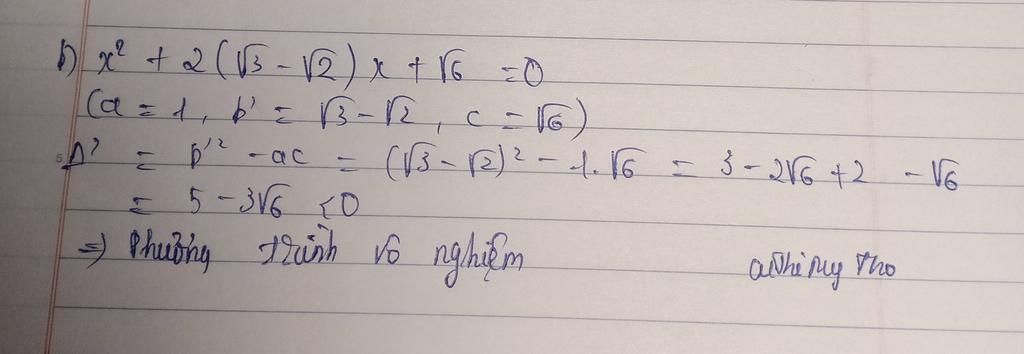 b) x² + 2(√3 - √2)x + √6 = 0
(a = 1, b' = √3 - √2, c = √6)
Δ' = b'² - ac = (√3 - √2)² - 1.√6 = 3 - 2√6 + 2 - √6
= 5 - 3√6 < 0
=> Phương trình vô nghiệm